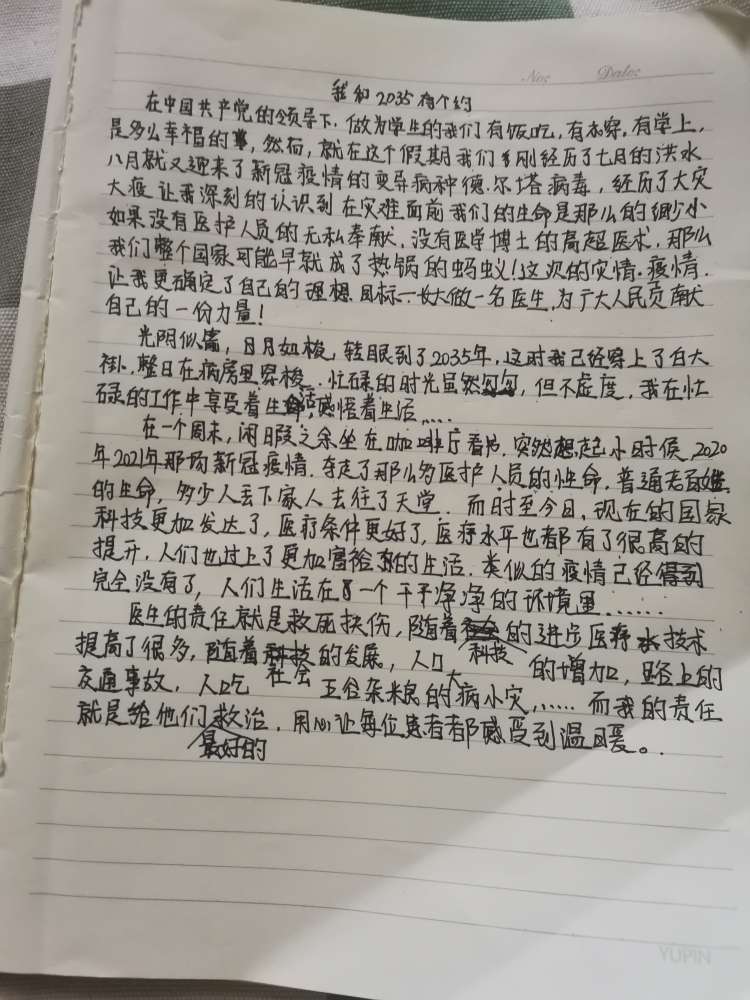 No:
Date:
我和2035有个约
在中国共产党的领导下,做为学生的我们有饭吃,有衣穿,有学上,
是多么幸福的事,然而,就在这个假期我们刚经历了七月的洪水
八月就又迎来了新冠疫情的变异病种德尔塔病毒,经历了大灾
大疫让我深刻的认识到在灾难面前我们的生命是那么的渺小
如果没有医护人员的无私奉献,没有医学博士的高超医术,那么
我们整个国家可能早就成了热锅的蚂蚁!这次的灾情.疫情.
让我更确定了自己的理想目标—长大做一名医生,为广大人民贡献
自己的一份力量!
光阴似箭,日月如梭,转眼到了2035年,这时我已经穿上了白大
褂.整日在病房里穿梭.忙碌的时光虽然匆匆,但不虚度,我在忙
碌的工作中享受着生活,感悟着生活……
在一个周末,闲暇之余坐在咖啡厅看书.突然想起小时候,2020
年2021年那场新冠疫情.夺走了那么多医护人员的性命.普通老百姓
的生命,多少人丢下家人去往了天堂.而时至今日,现在的国家
科技更加发达了,医疗条件更好了,医疗水平也都有了很高的
提升.人们也过上了更加富裕的生活.类似的疫情已经
完全没有了,人们生活在一个干干净净的环境里……
医生的责任就是救死扶伤,随着科技的进步医疗技术
提高了很多,随着社会的发展,人口大的增加,路上的
交通事故.人吃五谷杂粮的病小灾,……而我的责任
就是给他们最好的救治.用心让每位患者都感受到温暖。
YUPIN